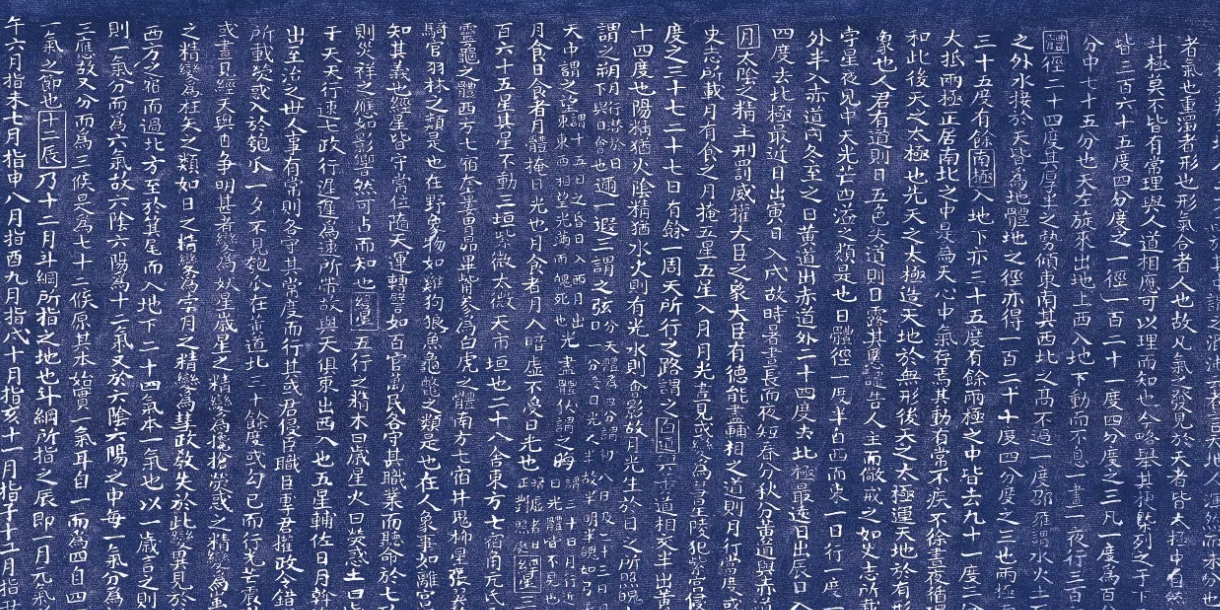 者氣也重濁者形也形氣合者人也故凡氣之發見於天者皆太極中自然
斗極莫不皆有常理與人道相應可以理而知也今略舉其梗槩列之于下
皆三百六十五度四分度之一徑一百二十一度四分度之三凡一度為百
分中七十五分也天左旋東出地上西入地下動而不息一晝一夜行三百
體徑二十四度其厚半之勢傾東南其西北之高不過一度邵雍謂水火土
之外水接於天皆為地體地之徑亦得一百二十一度四分度之三也兩極
三十五度有餘南極入地下亦三十五度有餘兩極之中皆去九十一度三
大抵兩極正居南北之中是為天心中氣存焉其動有常不疾不徐晝夜循
和此後天之太極也先天之太極造天地於無形後天之太極運天地於有形
象也人君有道則日五色失道則日露其慝譴告人主而儆戒之如史志所載
孛星夜見中天光芒四溢之類是也日體徑一度半自西而東一日行一度
外半入赤道內冬至之日黃道出赤道外二十四度去北極最遠日出辰日入
四度去北極最近日出寅日入戌故時暑晝長而夜短春分秋分黃道與赤
月太陰之精主刑罰威權大臣之象大臣有德能盡輔相之道則月行常度或
史志所載月有食之月掩五星五星入月月光晝見或變為彗星陵犯紫宮侵
度之三十七二十七日有餘一周天所行之路謂之白道 道相交半出黃
十四度也陽猶火陰精猶水火則有光水則含影故月光生於日之所照魄
謂之朔月行潛於日下與日會也邇一遐三謂之弦
天中謂之望 晦
月食日食者月體掩日光也月食者月入暗虛不受日光也 經星
百六十五星其星不動三垣紫微太微天市垣也二十八舍東方七宿角亢氐
靈龜之體西方七宿奎婁胃昴畢觜參為白虎之體南方七宿井鬼柳星張
騎官羽林之類是也在野象物如雞狗狼魚龜鱉之類是也在人象事如離宮
知其義也經星皆守常位隨天運轉譬如百官萬民各守其職業而聽命於七
則災祥之應如影響然可占而知也緯星五行之精木曰歲星火曰熒惑土曰
于天天行速七政行遲遲為速所帶故與天俱東出西入也五星輔佐日月斡
出至治之世人事有常則各守其常度而行其或君侵臣職臣專君權政令錯
所載熒惑入於匏瓜一夕不見匏瓜在黃道北三十餘度或勾已而行光芒震
或晝見經天與日爭明甚者變為妖星歲星之精變為攙搶熒惑之精變為蚩
之精變為枉矢之類如日之精變為孛月之精變為彗政教失於此變異見於
西方之宿而過北方至於其尾而入地下二十四氣本一氣也以一歲言之則
則一氣分而為六氣故六陰六陽為十二氣又於六陰六陽之中每一氣分為
三應故又分而為三候是為七十二候原其本始實一氣耳自一而為四自四
一氣之節也十二辰乃十二月斗綱所指之地也斗綱所指之辰即一月元氣
午六月指未七月指申八月指酉九月指戌十月指亥十一月指子十二月指